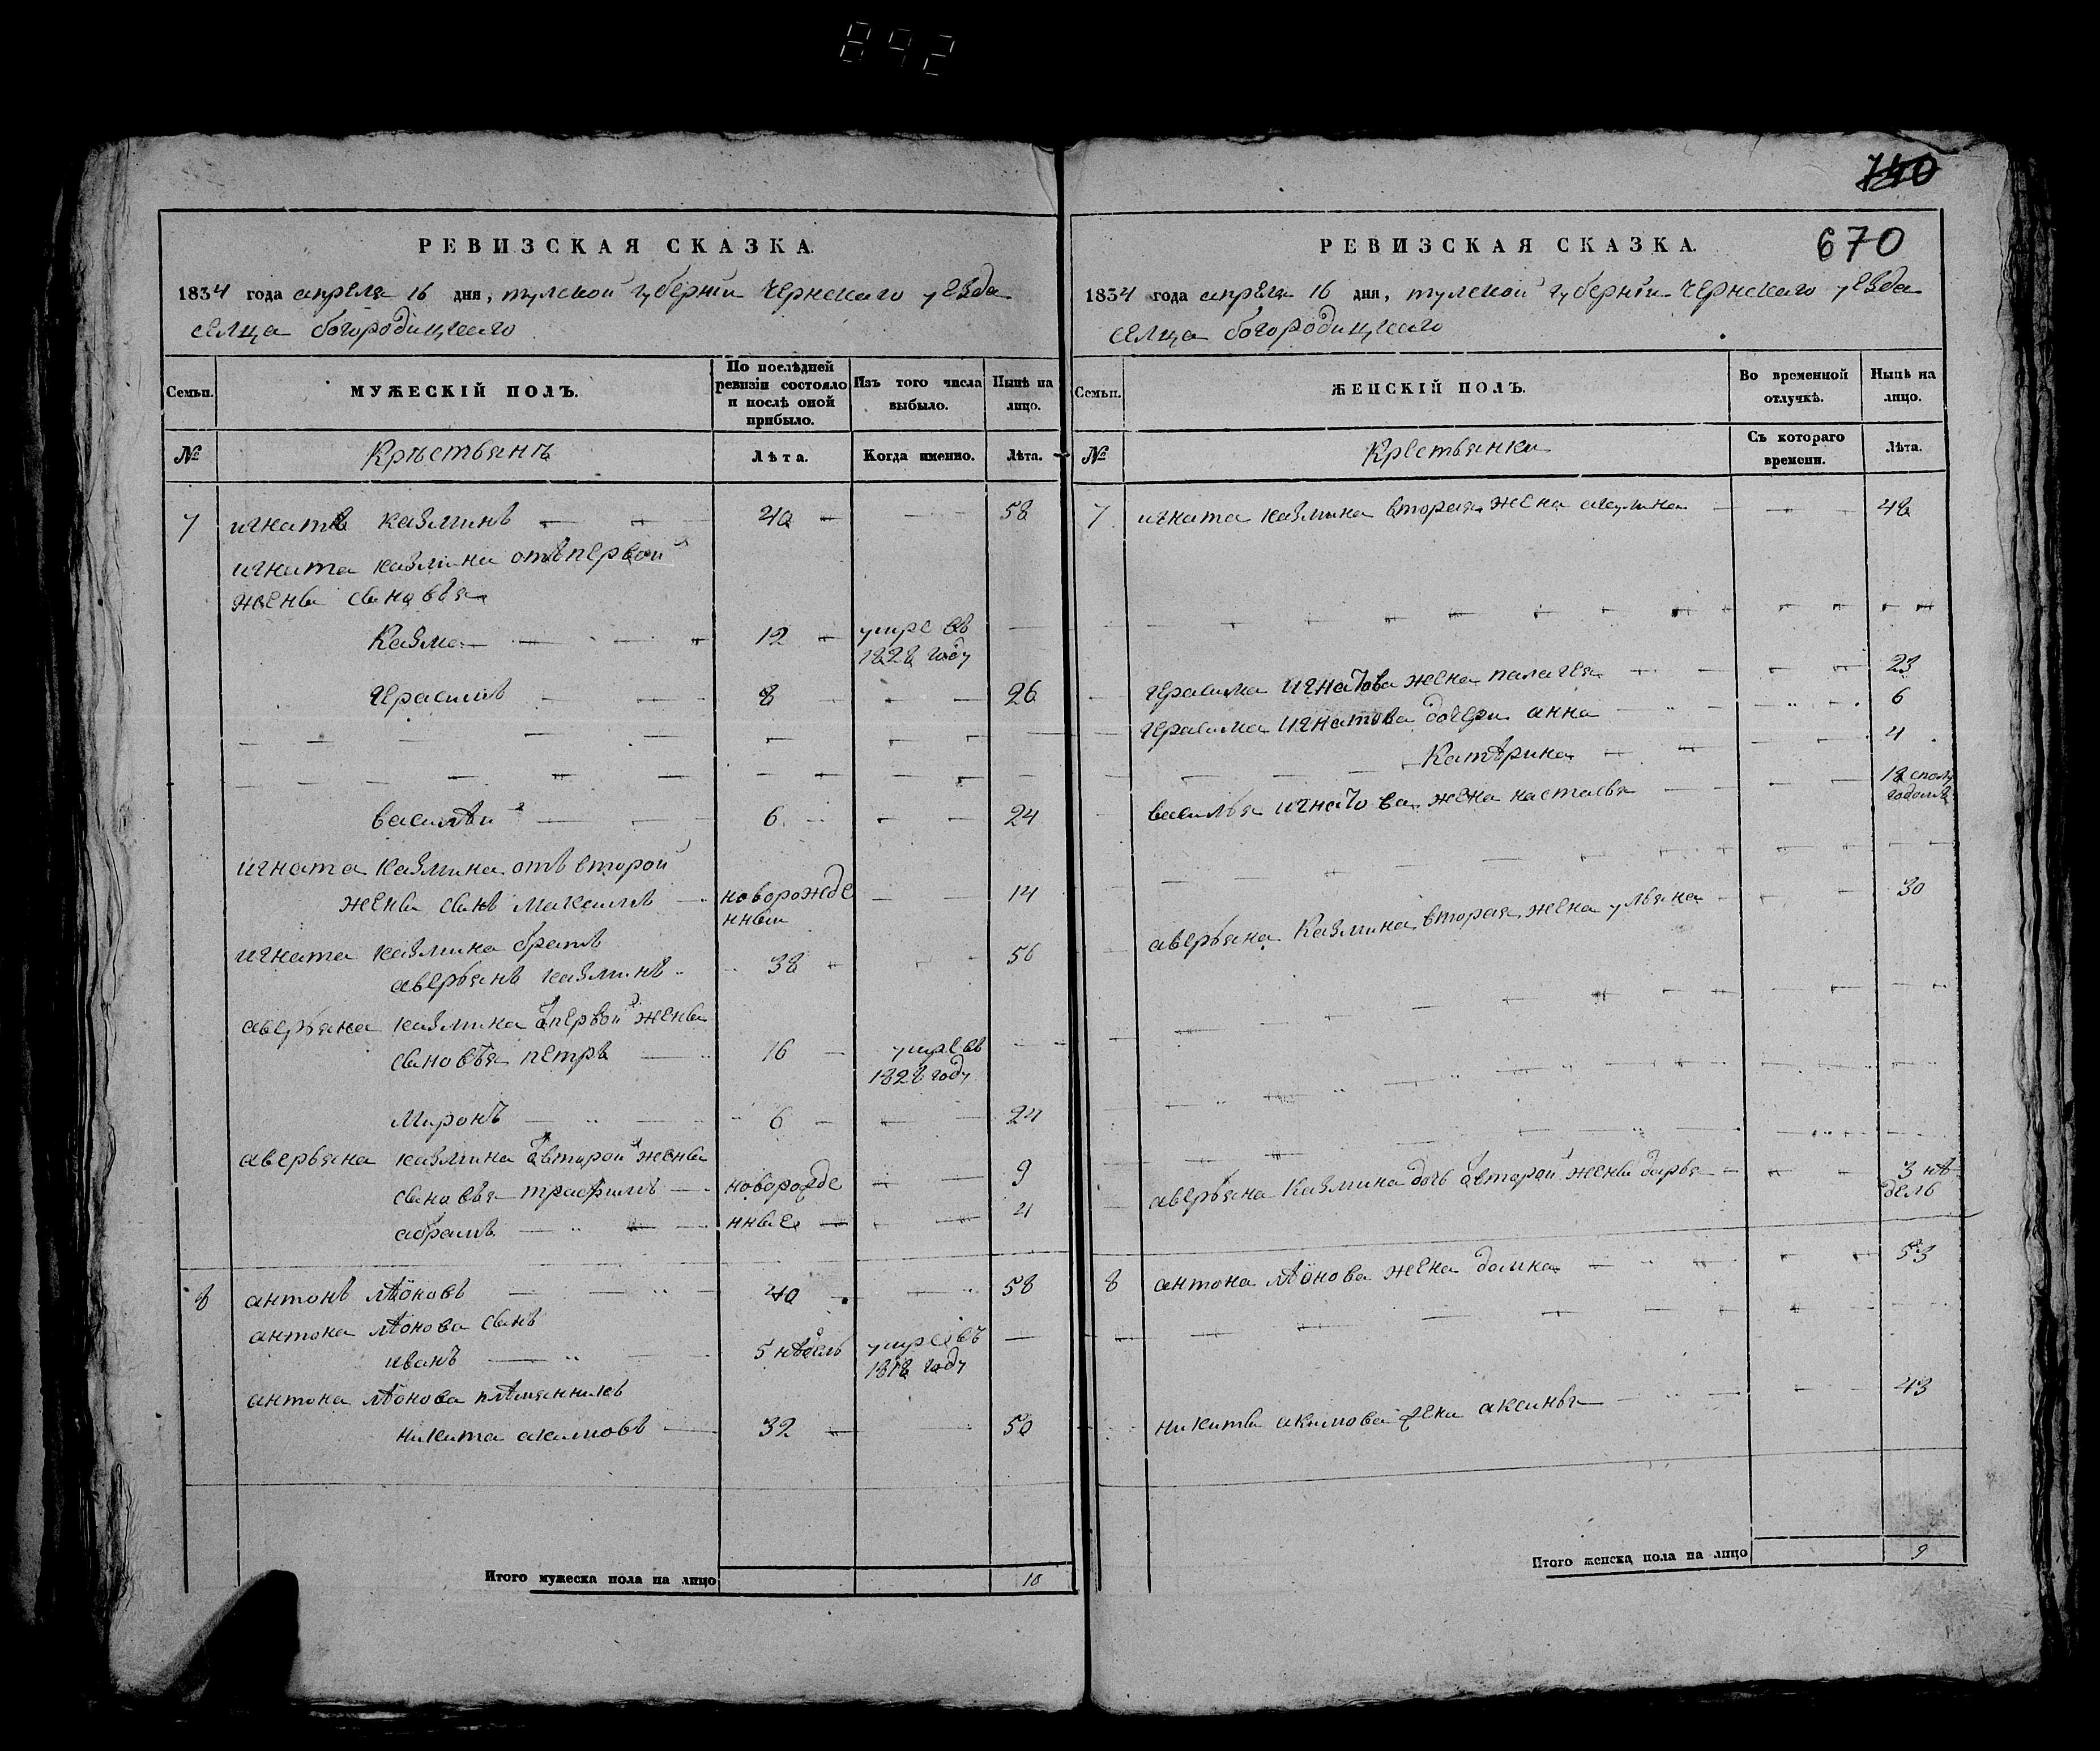 892
740
РЕВИЗСКАЯ СКАЗКА.
1834 года апреля 16 дня, тулской губернїи Чернскаго уезда
селца богородицкаго
Семьи.
МУЖЕСКІЙ ПОЛЪ.
По послѣдней ревизіи состояло и послѣ оной прибыло.
Изъ того числа выбыло.
Нынѣ на лицо.
№
Крѣстьянъ
Лѣта.
Когда именно.
Лѣта.
7 игнатъ казминъ 40 58
игната казмина отъ первой
жены сыновья
Казма 12 умре въ
1828 году
герасимъ 8 26
василѣй 6 24
игната казмина отъ второй
жены сынъ максимъ новорожде 14
нный
игната казмина братъ
аверьянъ казминъ 38 56
аверьяна казмина от первой жены
сыновья петръ 16 умре въ
1828 году
Миронъ 6 24
аверьяна казмина от второй жены
сыновья трафимъ новорожде 9
абрамъ нные 4
8 антонъ лѣоновъ 40 58
антона лѣонова сынъ
иванъ 5 недель умре въ
1818 году
антона лѣонова плѣмянникъ
никита акимовъ 32 50
Итого мужеска пола на лицо 10
РЕВИЗСКАЯ СКАЗКА.
670
1834 года апреля 16 дня, тулской губернїи Чернскаго уезда
селца богородицкаго
Семьи.
ЖЕНСКІЙ ПОЛЪ.
Во временной отлучкѣ.
Нынѣ на лицо.
№
Крестьянки
Съ котораго времени.
Лѣта.
7 игната казмина вторая жена акулина 48
герасима игнатова жена палагея 23
герасима игнатова дочери анна 6
Катѣрина 4
василья игнатова жена настасья 18 сполу
годомъ
аверьяна Казмина вторая жена ульяна 30
аверьяна Казмина дочь от второй жены дарья 3 нѣ
дель
8 антона лѣонова жена домна 53
никиты акимова жена аксинья 43
Итого женска пола на лицо 9